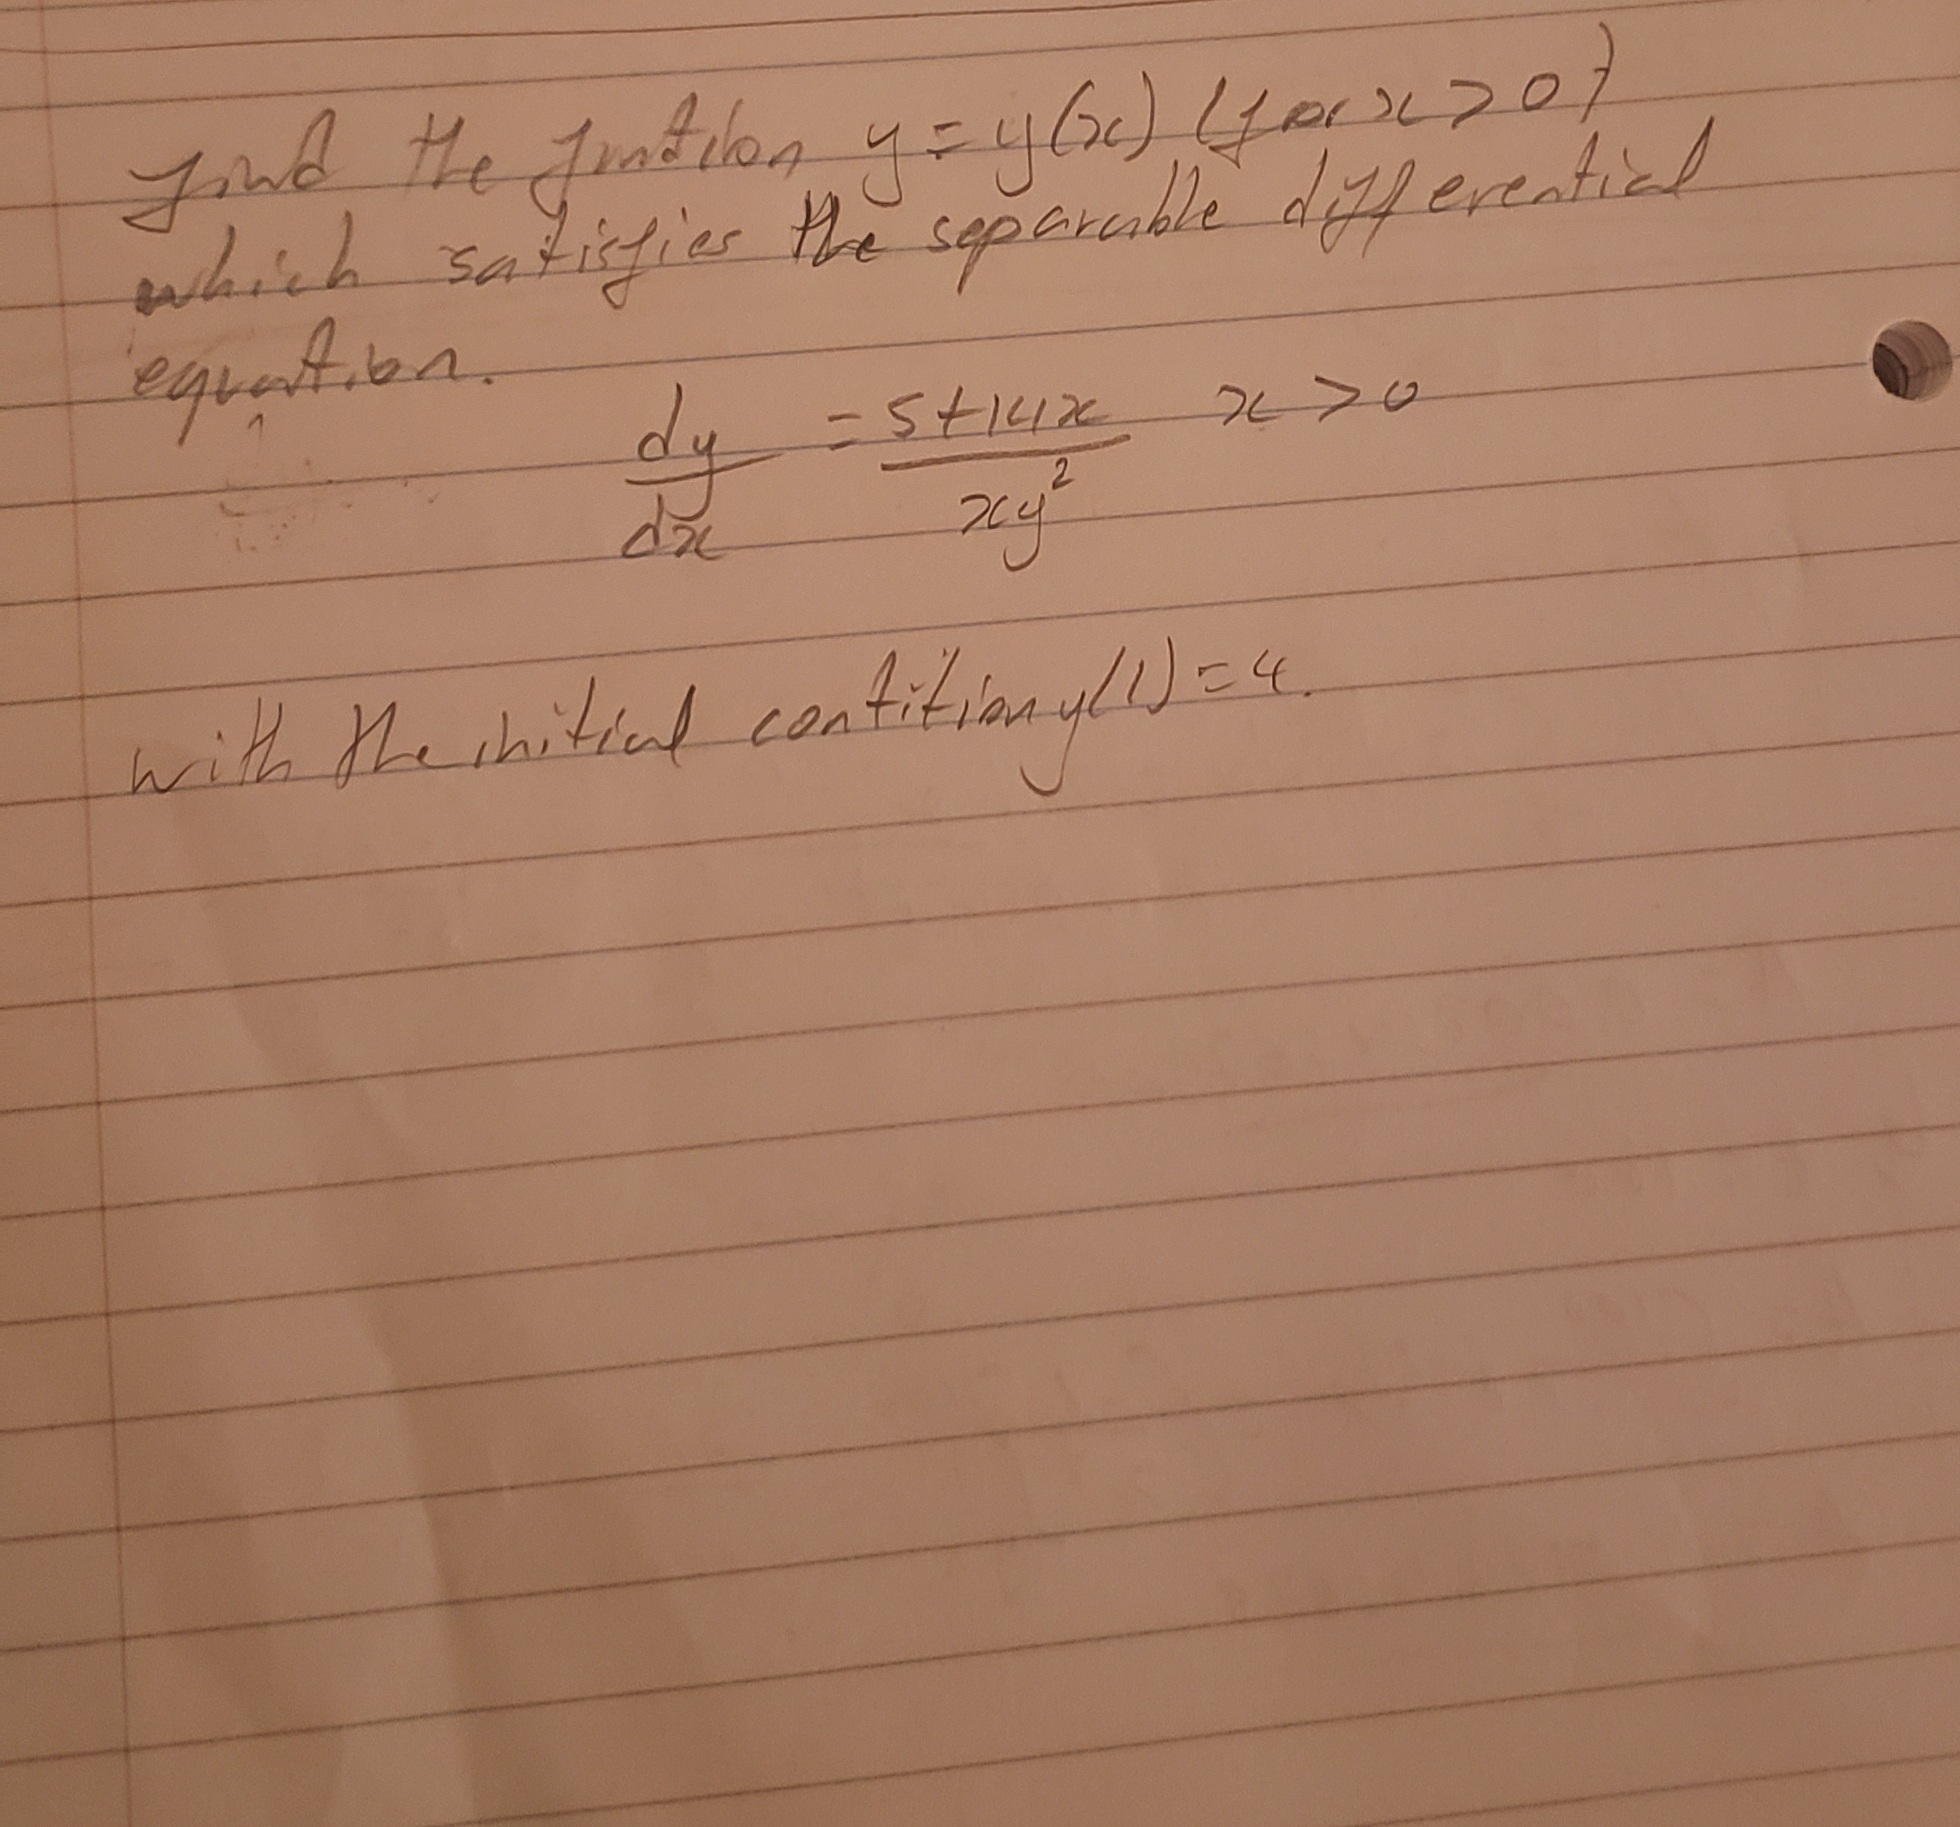 find the funtion y = y(x) (for x > 0)
which satisfies the separable differential
equation.
dy/dx = 5+14x/xy² x > 0
with the initial contition y(1) = 4.